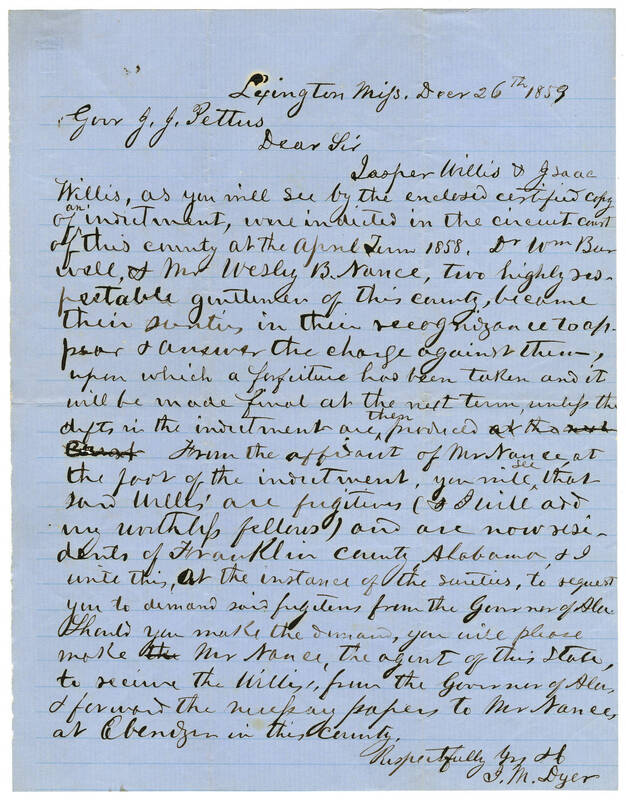 Lexington Miss. Decr 26th 1859
Govr J. J. Pettus
Dear Sir
Jasper Willis & Isaac
Willis, as you will see by the enclosed certified copy
of an indictment, were indicted in the circuit court
of this county at the April Term 1858. Dr Wm Bur
well, & Mr Wesley B. Nance, two highly res-
pectable gentlemen of this county, became
their sureties in their recognizance to ap-
pear & answer the charge against them,
upon which a forfeiture has been taken and it
will be made final at the next term, unless the
defts in the indictment are then produced at the next
From the affidavit of Mr Nance, at
the foot of the indictment, you will see, that
said Willis' are fugitives (& I will add
very worthless fellows) and are now resi-
dents of Franklin county Alabama, & I
write this, at the instance of the sureties, to request
you to demand said fugitives from the Governor of Ala.
Should you make the demand, you will please
make the Mr Nance, the agent of this State,
to receive the Willis', from the Governor of Ala.
& forward the necessary papers to Mr Nance,
at Ebenezer in this county.
Respectfully Yrs &c
J. M. Dyer